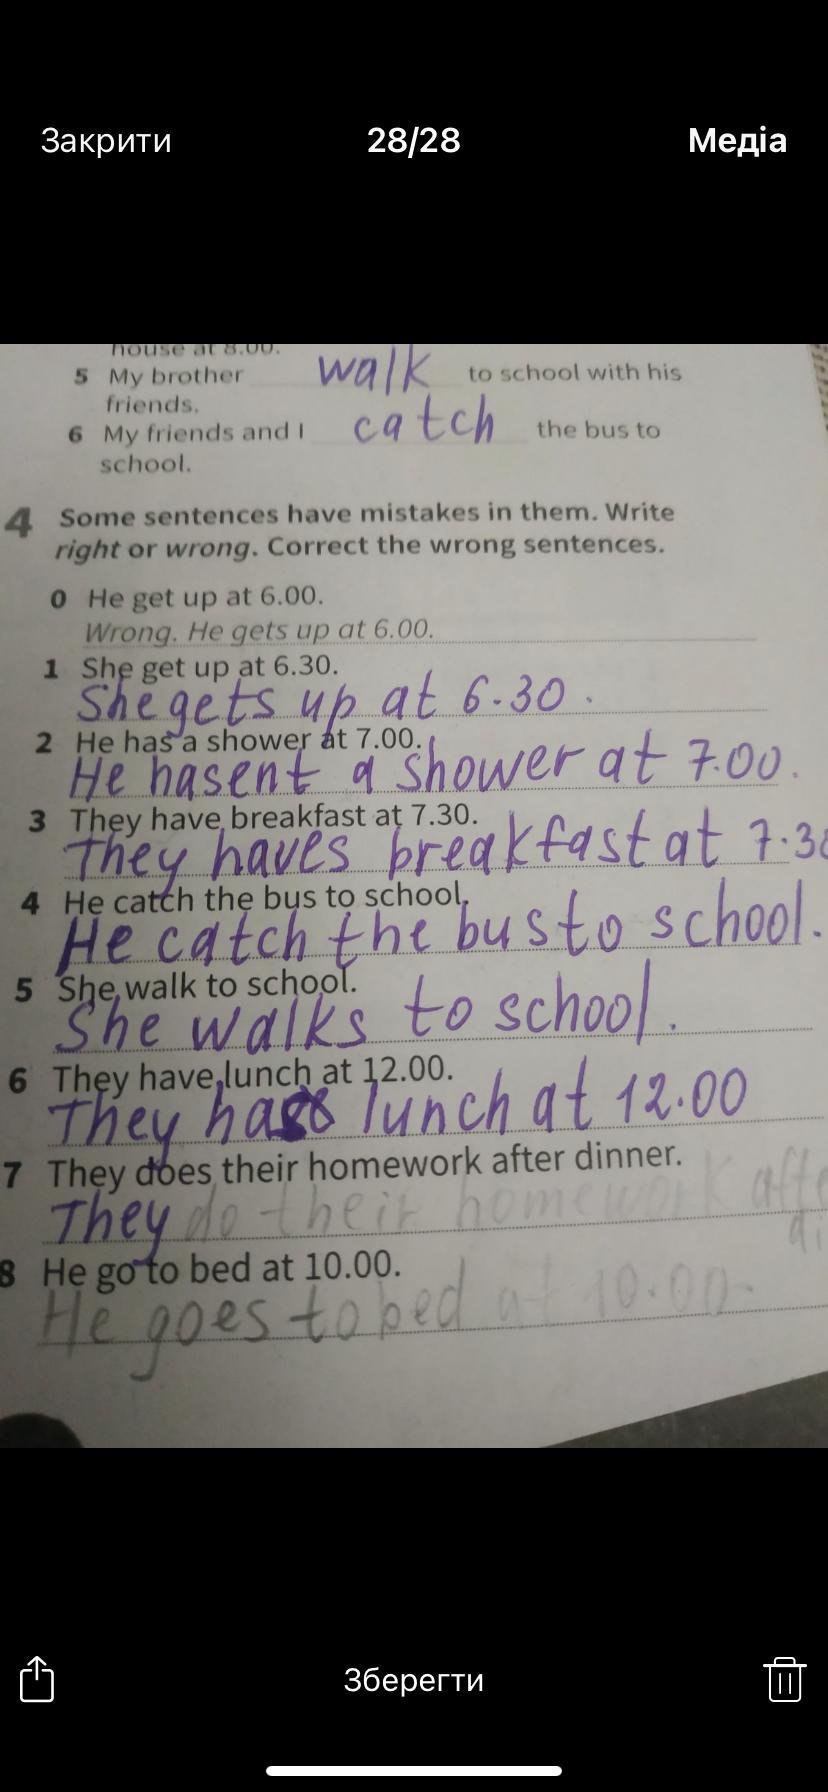 Закрити 28/28 Медіа
house at 8.00.
5 My brother walk to school with his
friends.
6 My friends and I catch the bus to
school.
4 Some sentences have mistakes in them. Write
right or wrong. Correct the wrong sentences.
0 He get up at 6.00.
Wrong. He gets up at 6.00.
1 She get up at 6.30.
She gets up at 6.30.
2 He has a shower at 7.00.
He hasent a shower at 7.00.
3 They have breakfast at 7.30.
They haves breakfast at 7.30
4 He catch the bus to school.
He catch the bus to school.
5 She walk to school.
She walks to school.
6 They have lunch at 12.00.
They lunch at 12.00
7 They does their homework after dinner.
They do their homework afte
di
8 He go to bed at 10.00.
He goes to bed at 10.00.
Зберегти